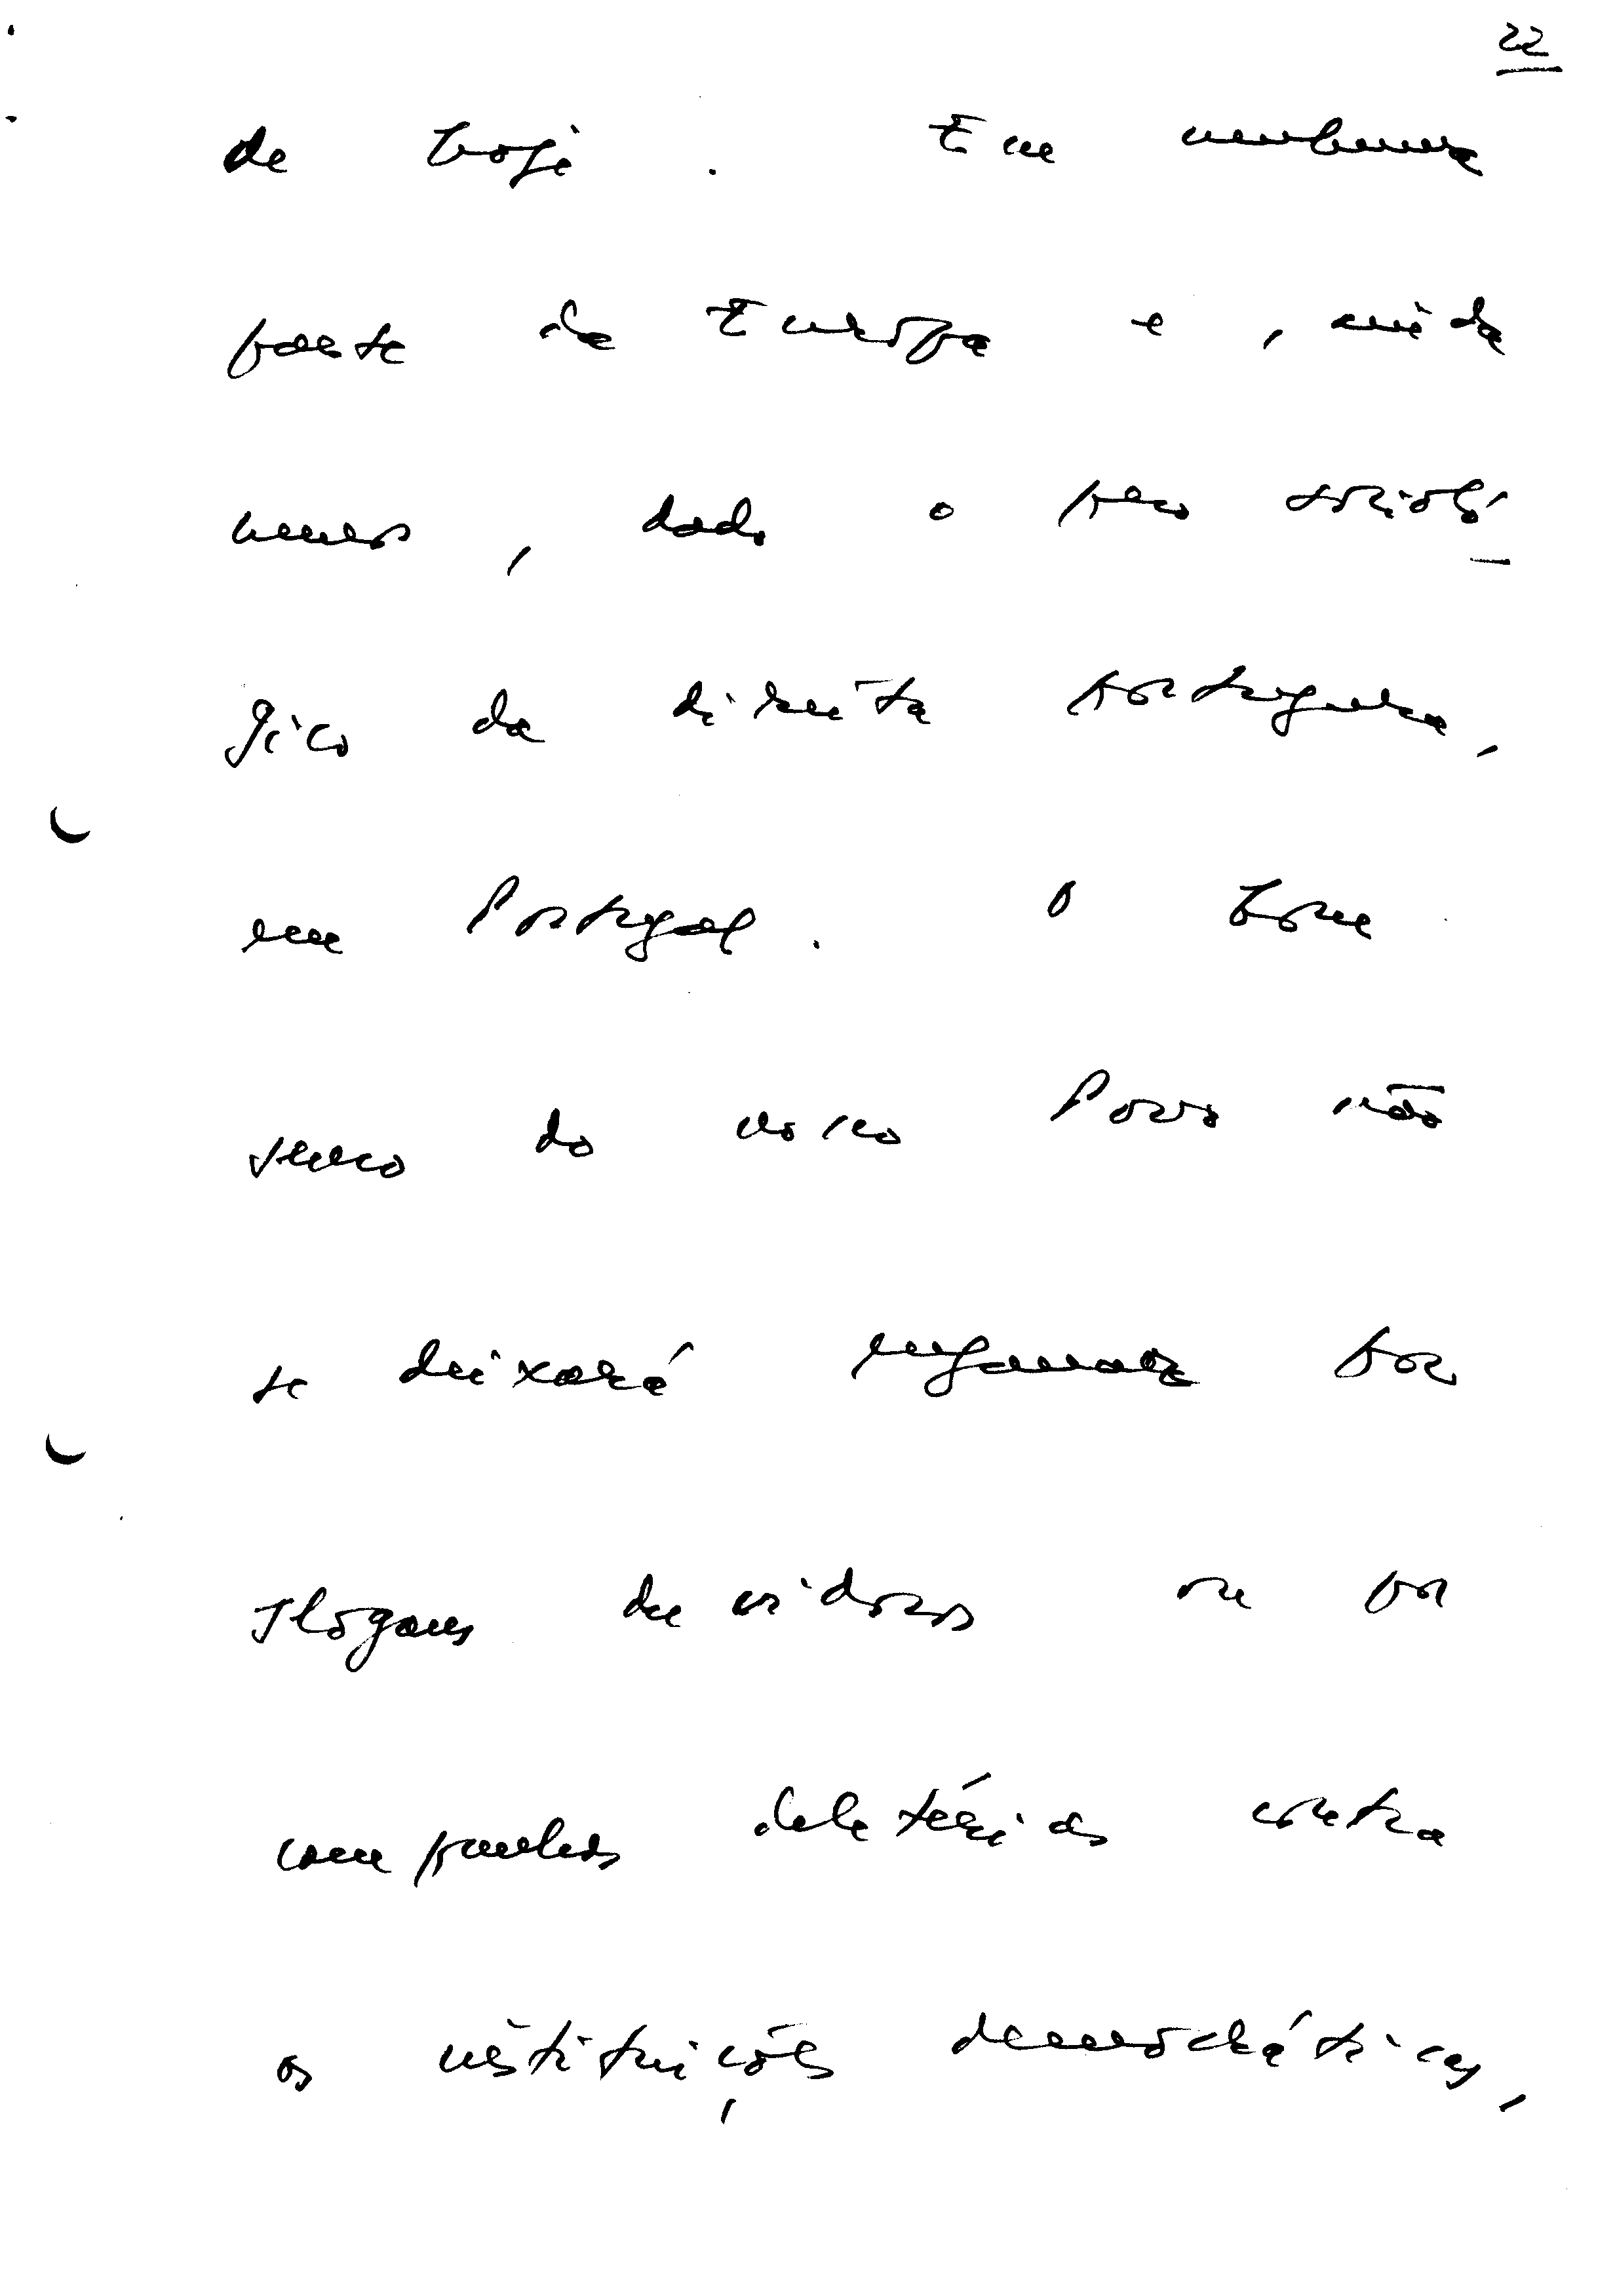 22
de hoje. Em nenhuma
parte da Europa e, ainda
menos, dado o peso socioló-
gico da direita portuguesa,
em Portugal. O bom
senso do nosso Povo não
se deixará enganar por
slogans duvidosos ou por
campanhas deletérias contra
as instituições democráticas,